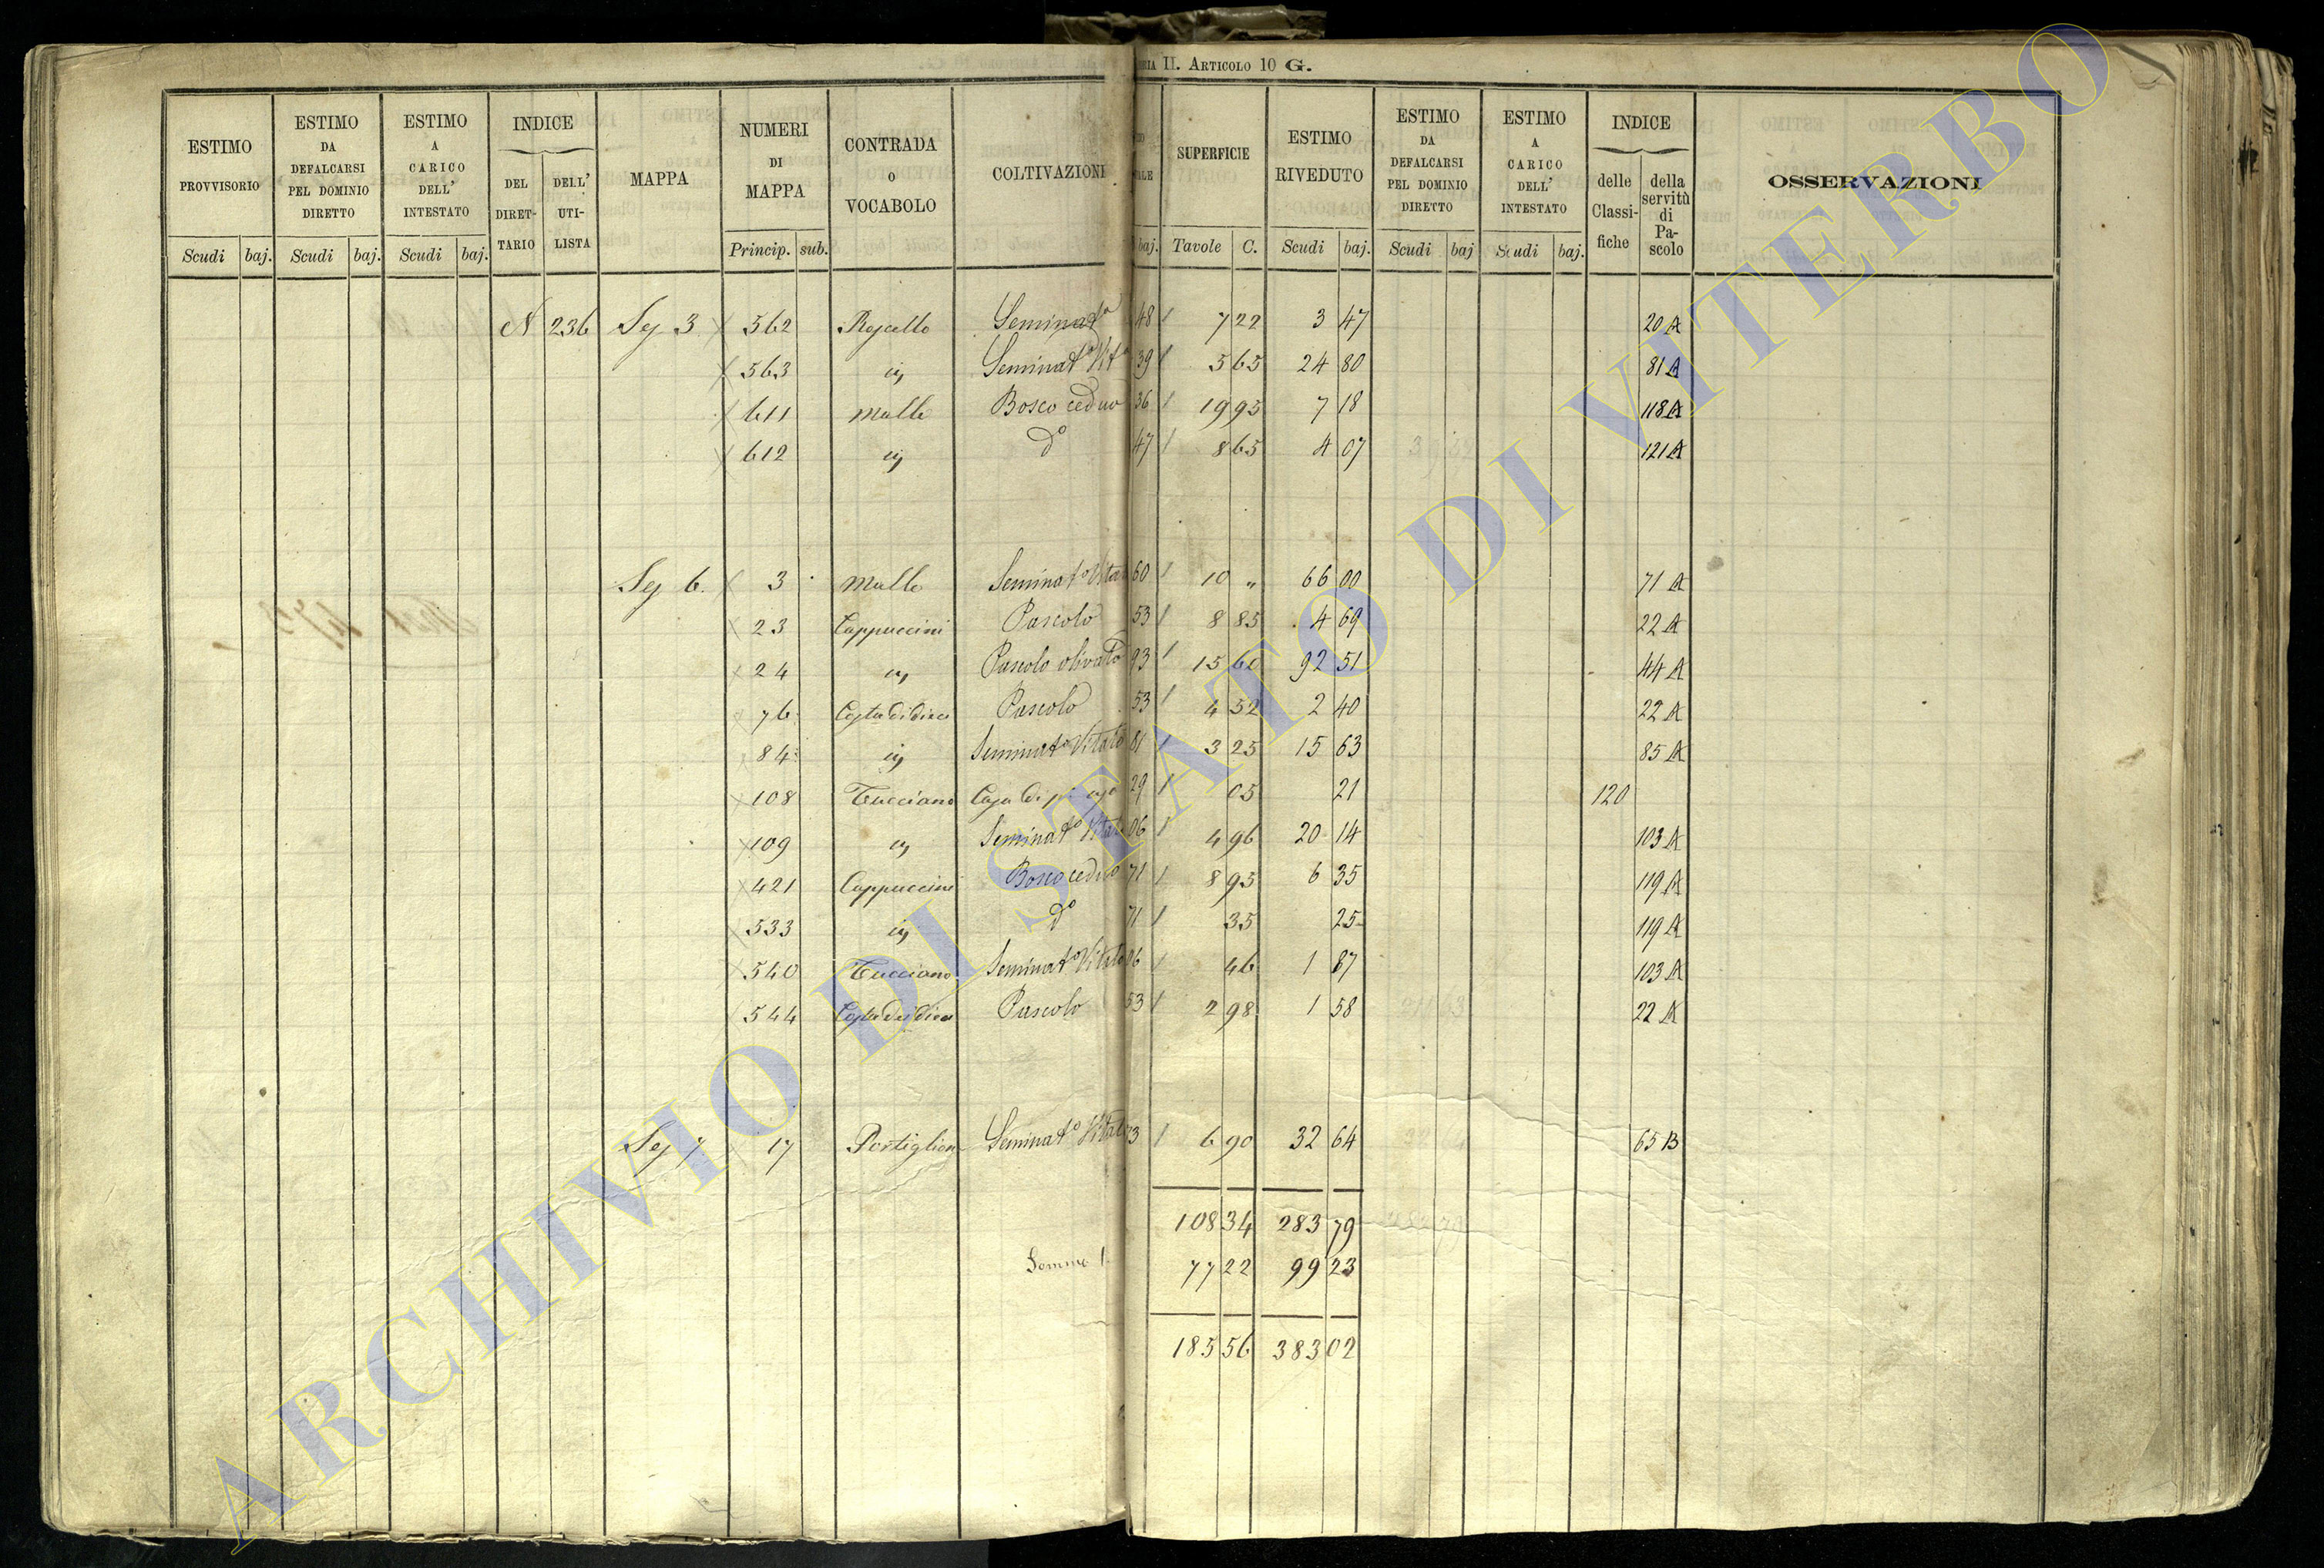 II. Articolo 10 G.
ESTIMO PROVVISORIO
ESTIMO DA DEFALCARSI PEL DOMINIO DIRETTO
ESTIMO A CARICO DELL' INTESTATO
INDICE
DEL DIRET-TARIO
DELL' UTI-LISTA
MAPPA
NUMERI DI MAPPA
CONTRADA O VOCABOLO
COLTIVAZIONI
SUPERFICIE
ESTIMO RIVEDUTO
ESTIMO DA DEFALCARSI PEL DOMINIO DIRETTO
ESTIMO A CARICO DELL' INTESTATO
INDICE
delle Classi-fiche
della servitù di Pa-scolo
OSSERVAZIONI
Scudi baj. Scudi baj. Scudi baj. Princip. sub. baj. Tavole C. Scudi baj. Scudi baj Scudi baj.
N 236 Sez 3 562 Seminato 48 7 22 3 47 20 A
563 Seminato Vito 39 5 65 24 80 81 A
611 Molle Bosco ceduo 36 19 95 7 18 118 A
612 do 47 8 65 4 07 121 A
Sez 6. 3 Molle Seminato Vitato 60 10 „ 66 00 71 A
23 Cappuccini Pascolo 53 8 85 4 69 22 A
24 Pascolo olivato 93 15 60 92 51 44 A
76 Pascolo 53 4 52 2 40 22 A
84 Seminato Vitato 81 3 25 15 63 85 A
108 Tucciano Casa di 29 05 21 120
109 Seminato Vitato 06 4 96 20 14 103 A
421 Cappuccini Bosco ceduo 71 8 95 6 35 119 A
533 do 71 35 25 119 A
540 Tucciano Seminato Vitato 06 46 1 87 103 A
544 Pascolo 53 2 98 1 58 22 A
Sez 7 17 Portiglione Seminato Vitato 73 6 90 32 64 65 B
108 34 283 79
Somma 77 22 99 23
185 56 383 02
ARCHIVIO DI STATO DI VITERBO